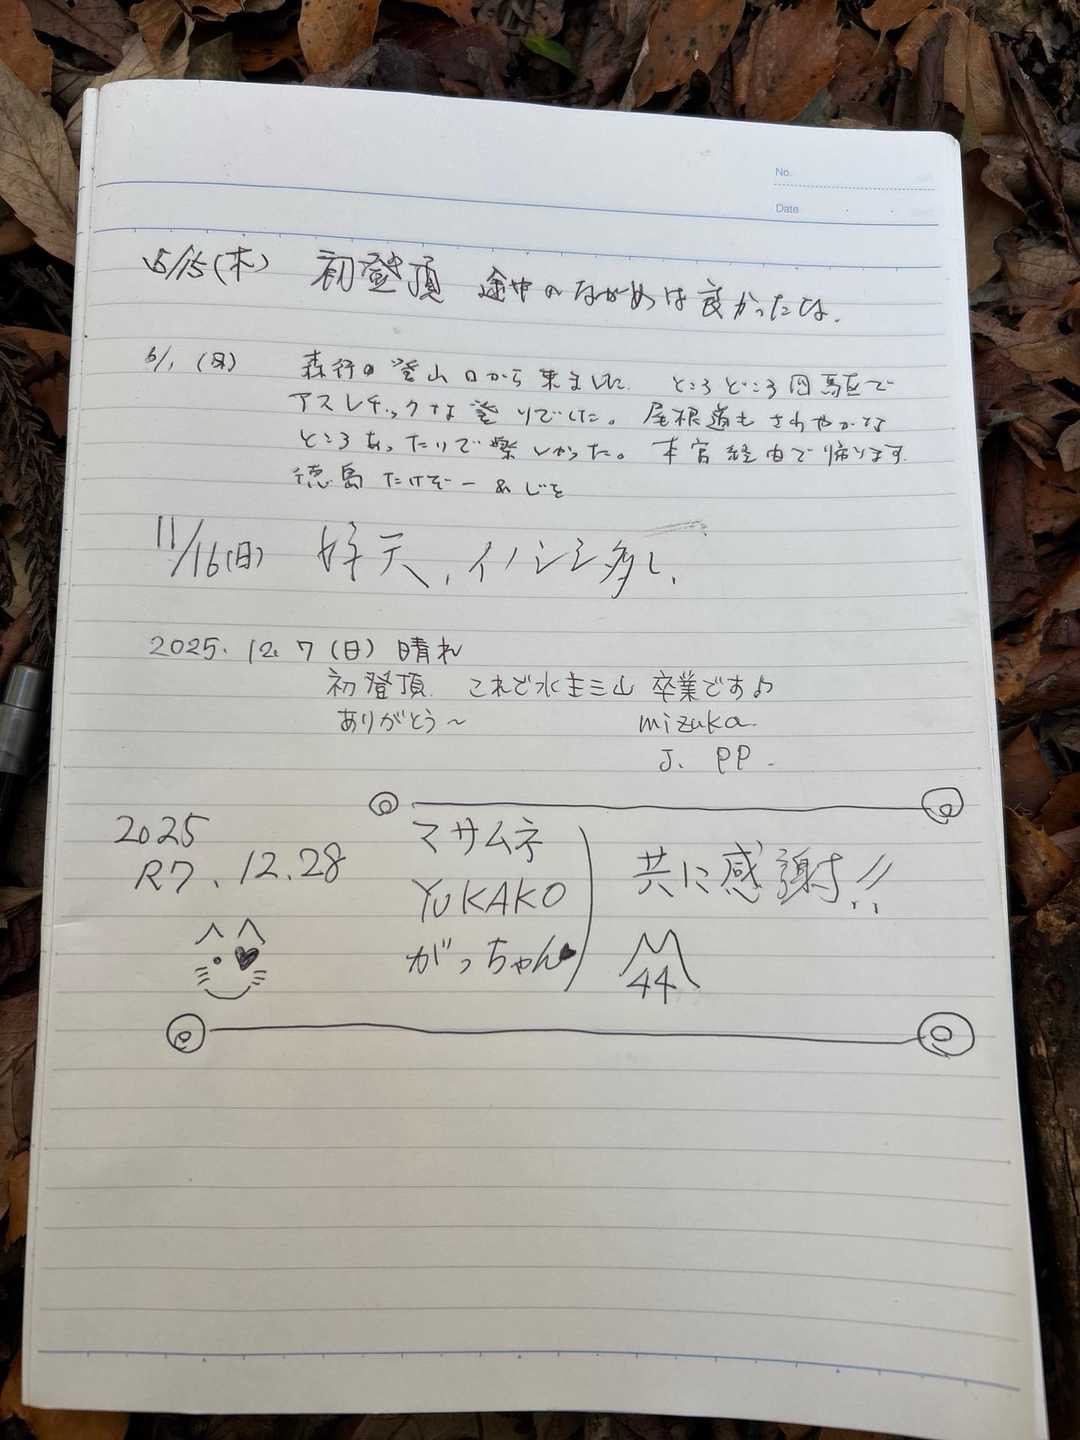 No.
Date
5/15(木) 初登頂 途中のながめは良かったな.
6/1 (日) 森行の登山口から来ました. ところどころ四駆で
アスレチックな登りでした。尾根道もさわやかな
ところあったりで楽しかった。本宮経由で帰ります.
徳島 たけぞー
11/16(日) 好天、イノシシ多し、
2025.12.7(日) 晴れ
初登頂. これで水主三山 卒業です♪
ありがとう〜 mizuka.
J. PP.
2025
R7.12.28
マサムネ
YUKAKO
がっちゃん♥
共に感謝!!
44